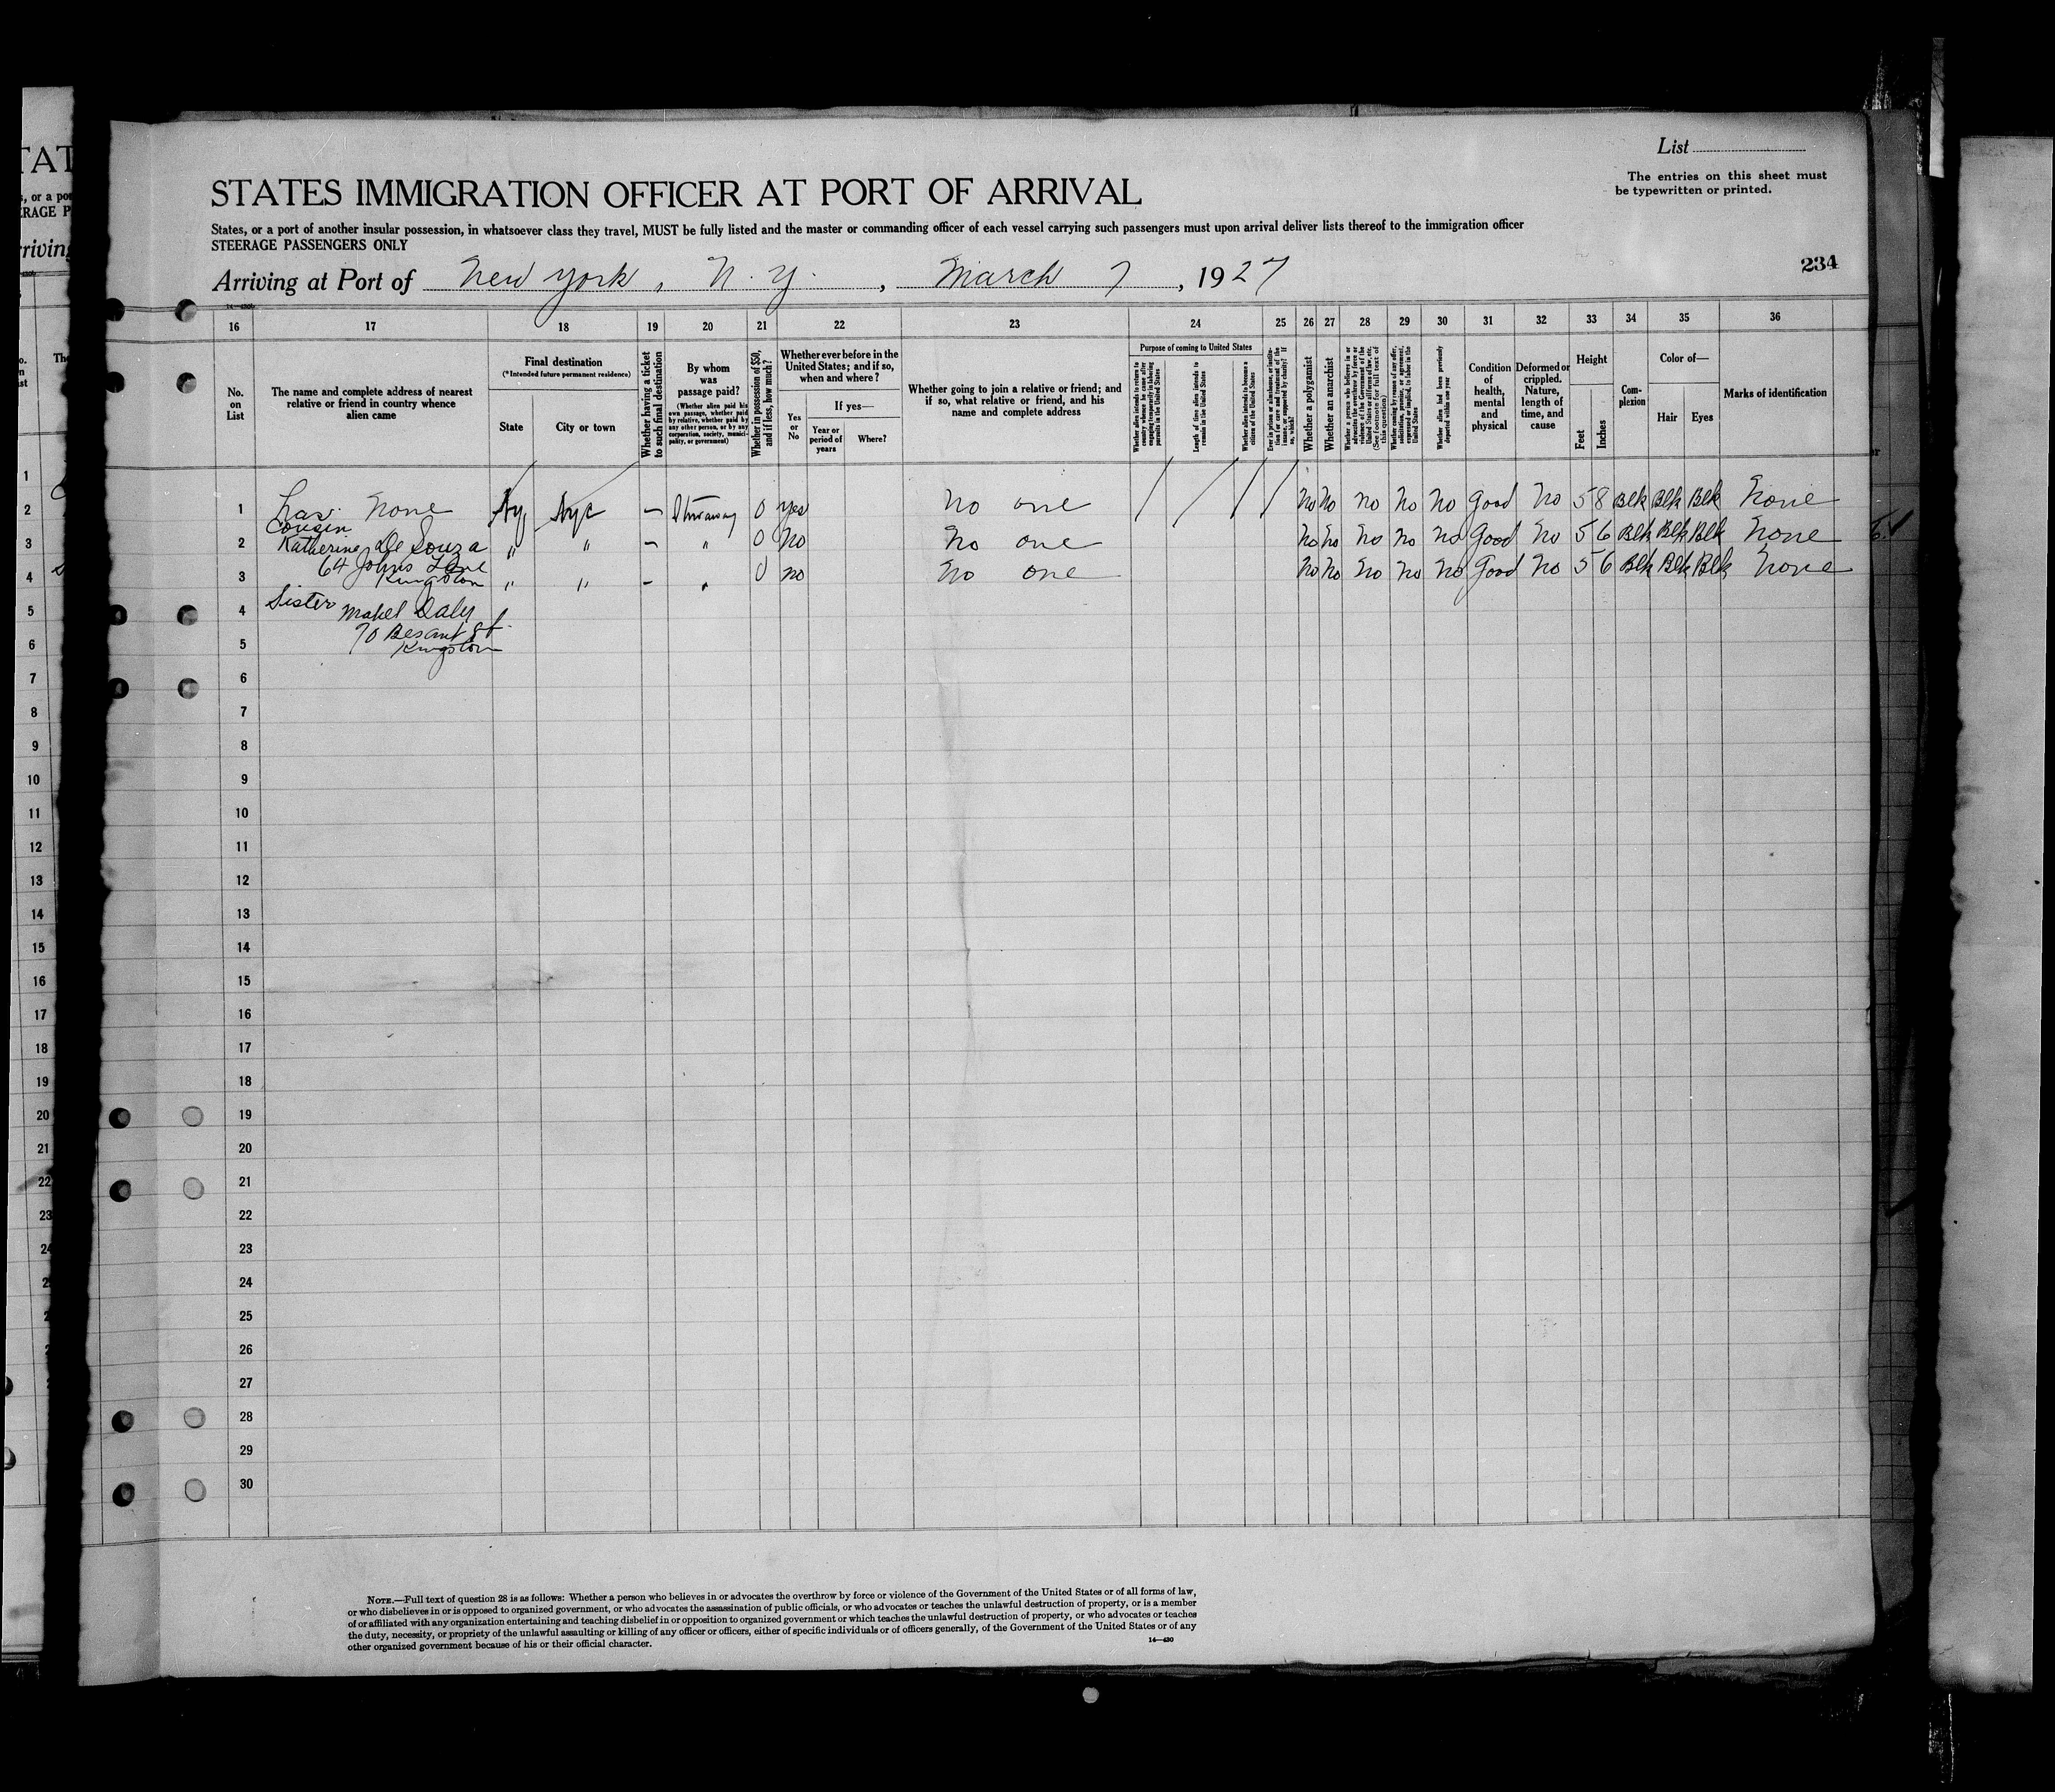 List
The entries on this sheet must
be typewritten or printed.
STATES IMMIGRATION OFFICER AT PORT OF ARRIVAL
States, or a port of another insular possession, in whatsoever class they travel, MUST be fully listed and the master or commanding officer of each vessel carrying such passengers must upon arrival deliver lists thereof to the immigration officer
STEERAGE PASSENGERS ONLY
234
Arriving at Port of New York, N.Y., March 7, 1927
16 17 18 19 20 21 22 23 24 25 26 27 28 29 30 31 32 33 34 35 36
No. on List
The name and complete address of nearest
relative or friend in country whence
alien came
Final destination
(*Intended future permanent residence)
State
City or town
Whether having a ticket
to such final destination
By whom
was
passage paid?
(Whether alien paid his
own passage, whether paid
by relative, whether paid by
any other person, or by any
corporation, society, munici-
pality, or government)
Whether in possession of $50,
and if less, how much?
Whether ever before in the
United States; and if so,
when and where?
Yes
or
No
If yes—
Year or
period of
years
Where?
Whether going to join a relative or friend; and
if so, what relative or friend, and his
name and complete address
Purpose of coming to United States
Length of time alien intends to
remain in the United States
Whether alien intends to become a
citizen of the United States
Whether a polygamist
Whether an anarchist
Whether alien had been previously
deported within one year
Condition
of
health,
mental
and
physical
Deformed or
crippled.
Nature,
length of
time, and
cause
Height
Feet
Inches
Com-
plexion
Color of—
Hair
Eyes
Marks of identification
1 Has None Ny Nyc — 0 yes No one No No No No No Good No 5 8 Blk Blk Blk None
Cousin
2 Katherine De Souza " " — " 0 No No one No No No No No Good No 5 6 Blk Blk Blk None
64 Johns Lane
3 Kingston " " — " 0 no No one No No No No No Good No 5 6 Blk Blk Blk None
4 Sister Mabel Daly
70 Besant St.
5 Kingston
6
7
8
9
10
11
12
13
14
15
16
17
18
19
20
21
22
23
24
25
26
27
28
29
30
NOTE.—Full text of question 28 is as follows: Whether a person who believes in or advocates the overthrow by force or violence of the Government of the United States or of all forms of law,
or who disbelieves in or is opposed to organized government, or who advocates the assassination of public officials, or who advocates or teaches the unlawful destruction of property, or is a member
of or affiliated with any organization entertaining and teaching disbelief in or opposition to organized government or which teaches the unlawful destruction of property, or who advocates or teaches
the duty, necessity, or propriety of the unlawful assaulting or killing of any officer or officers, either of specific individuals or of officers generally, of the Government of the United States or of any
other organized government because of his or their official character.
14—430